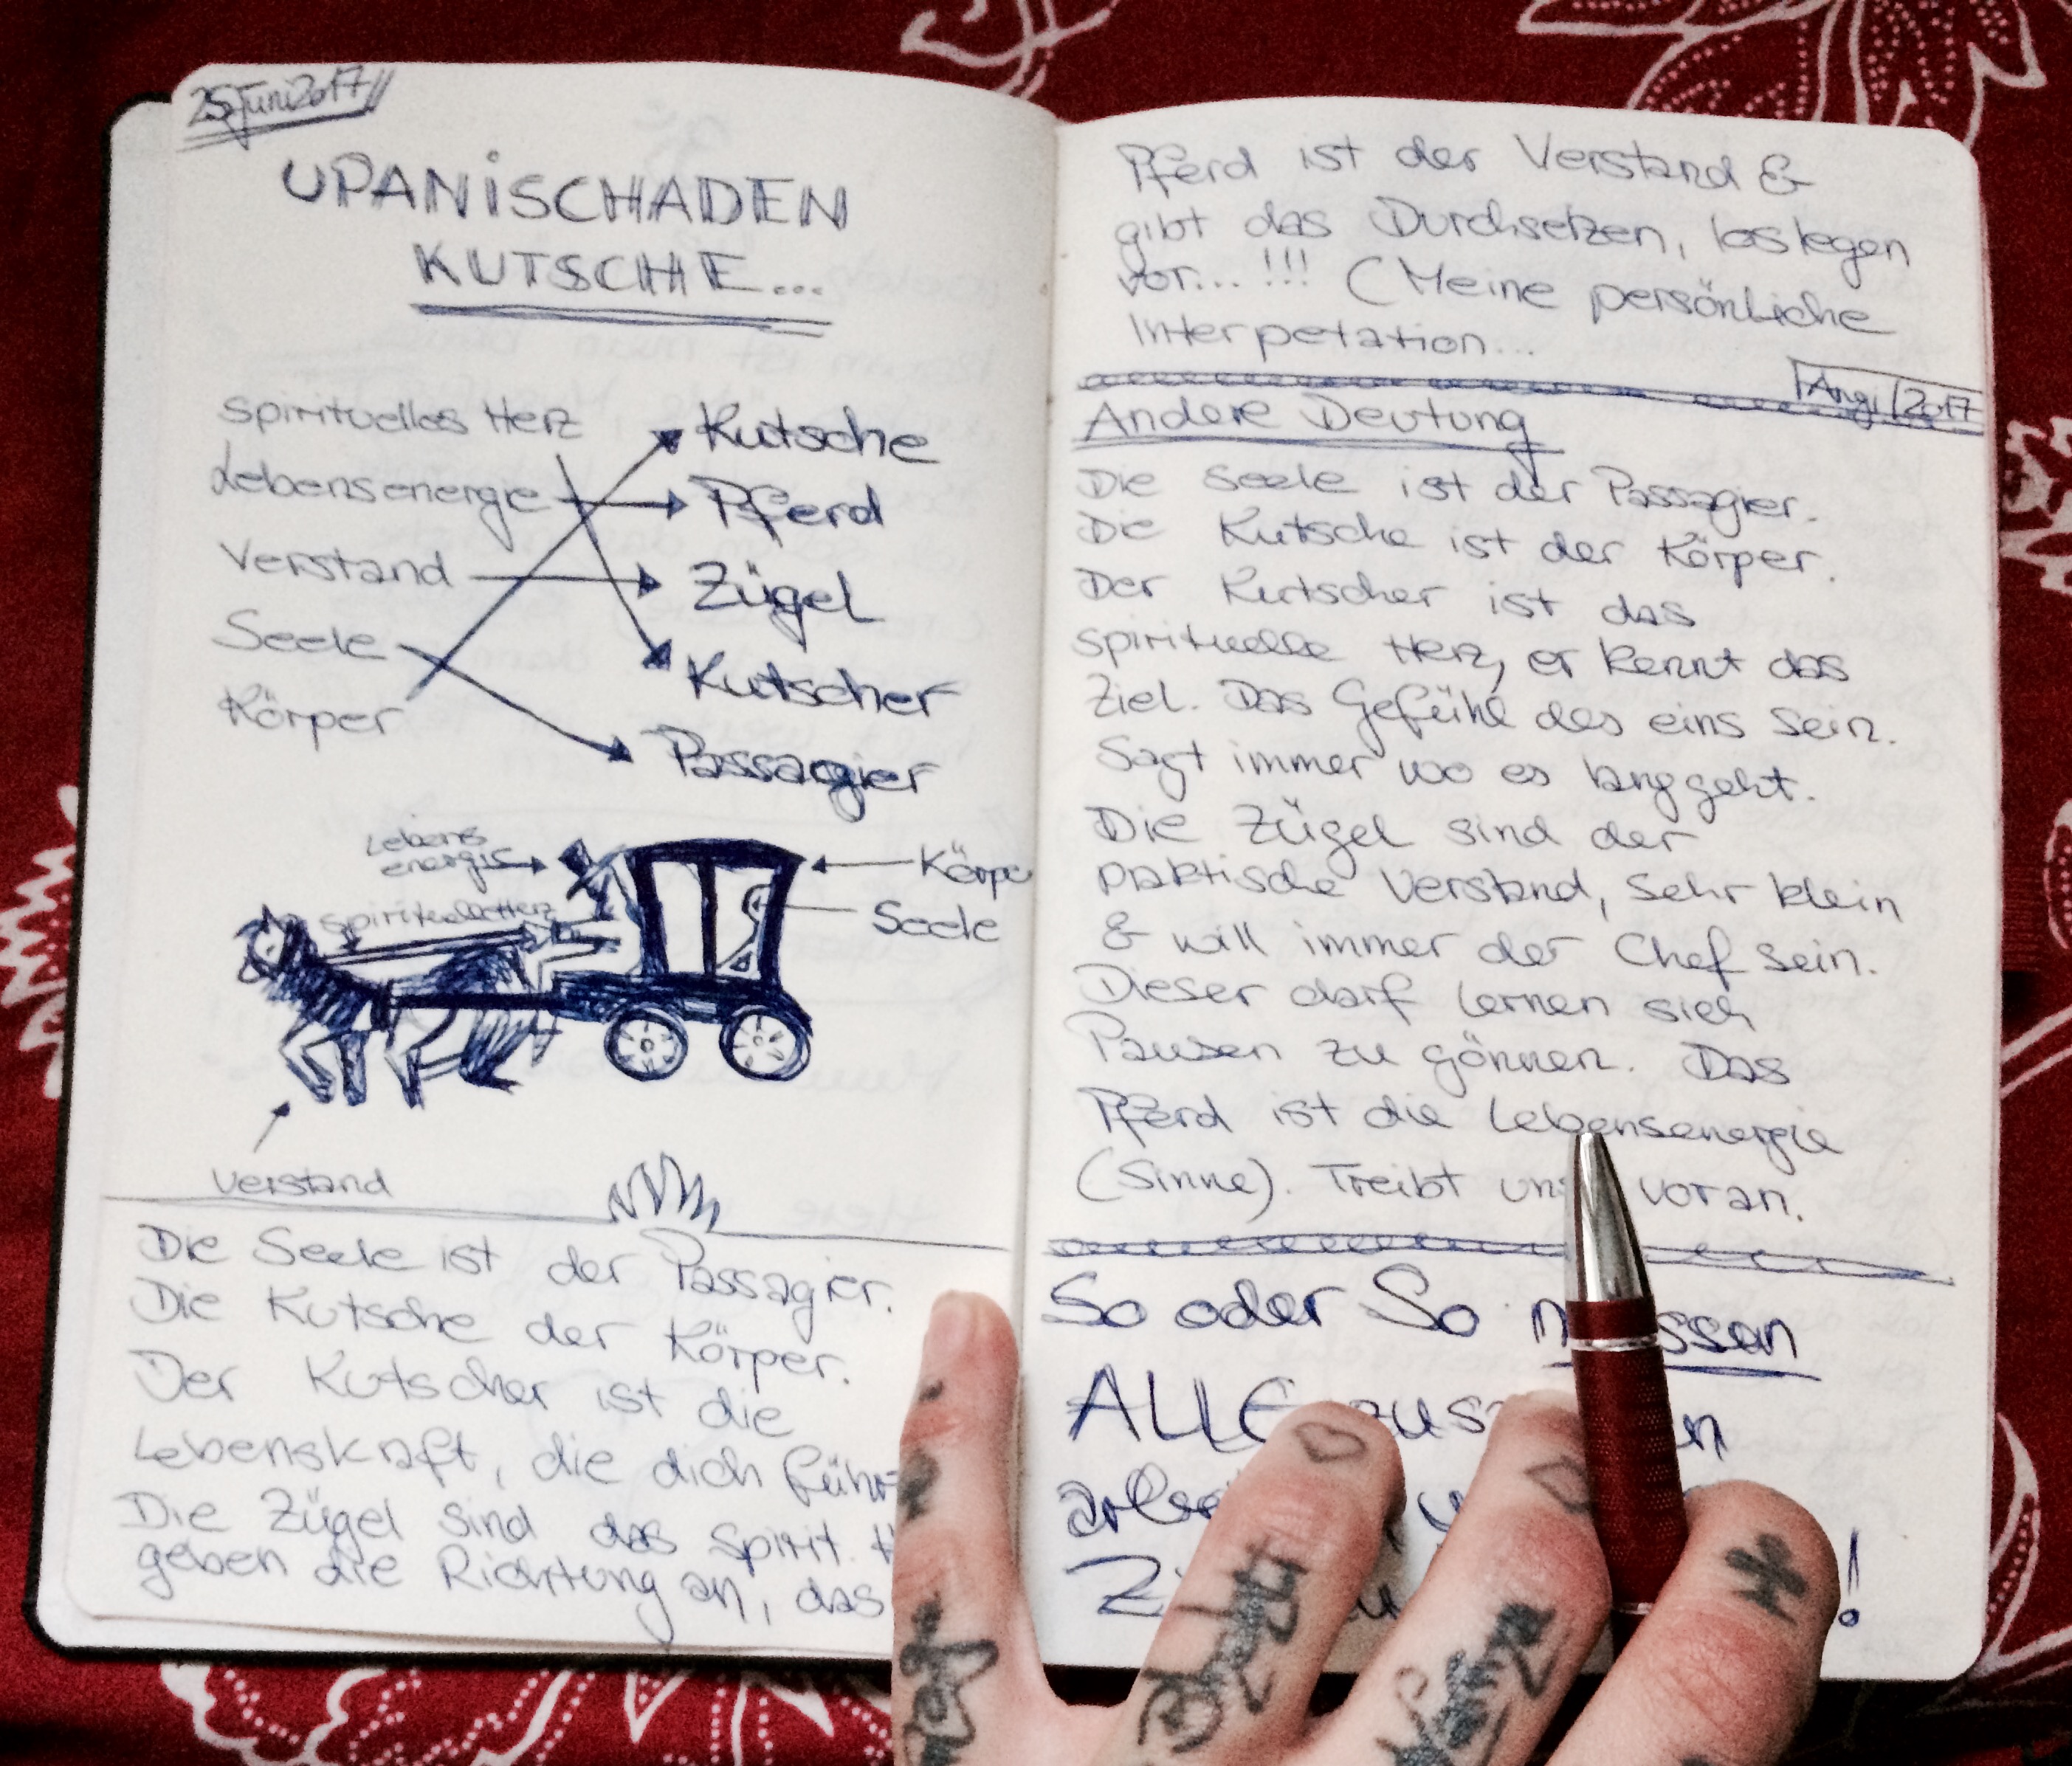 25 Juni 2017
UPANiSCHADEN
KUTSCHE...
Spirituelles Herz
Lebensenergie
Verstand
Seele
Körper
Kutsche
Pferd
Zügel
Kutscher
Passagier
Lebens
energie
Spirituelles Herz
Körpe
Seele
Verstand
Die Seele ist der Passagier.
Die Kutsche der Körper.
Der Kutscher ist die
Lebenskraft, die dich führt
Die Zügel sind das Spirit.
geben die Richtung an, das
Pferd ist der Verstand &
gibt das Durchsetzen, loslegen
vor...!!! (Meine persönliche
Interpetation...
Angi 2017
Andere Deutung
Die Seele ist der Passagier.
Die Kutsche ist der Körper.
Der Kutscher ist das
spirituelle Herz, er kennt das
Ziel. Das Gefühl des eins sein.
Sagt immer wo es lang geht.
Die Zügel sind der
praktische Verstand, sehr klein
& will immer der Chef sein.
Dieser darf lernen sich
Pausen zu gönnen. Das
Pferd ist die Lebensenergie
(Sinne). Treibt uns voran.
So oder So
ALLE
!